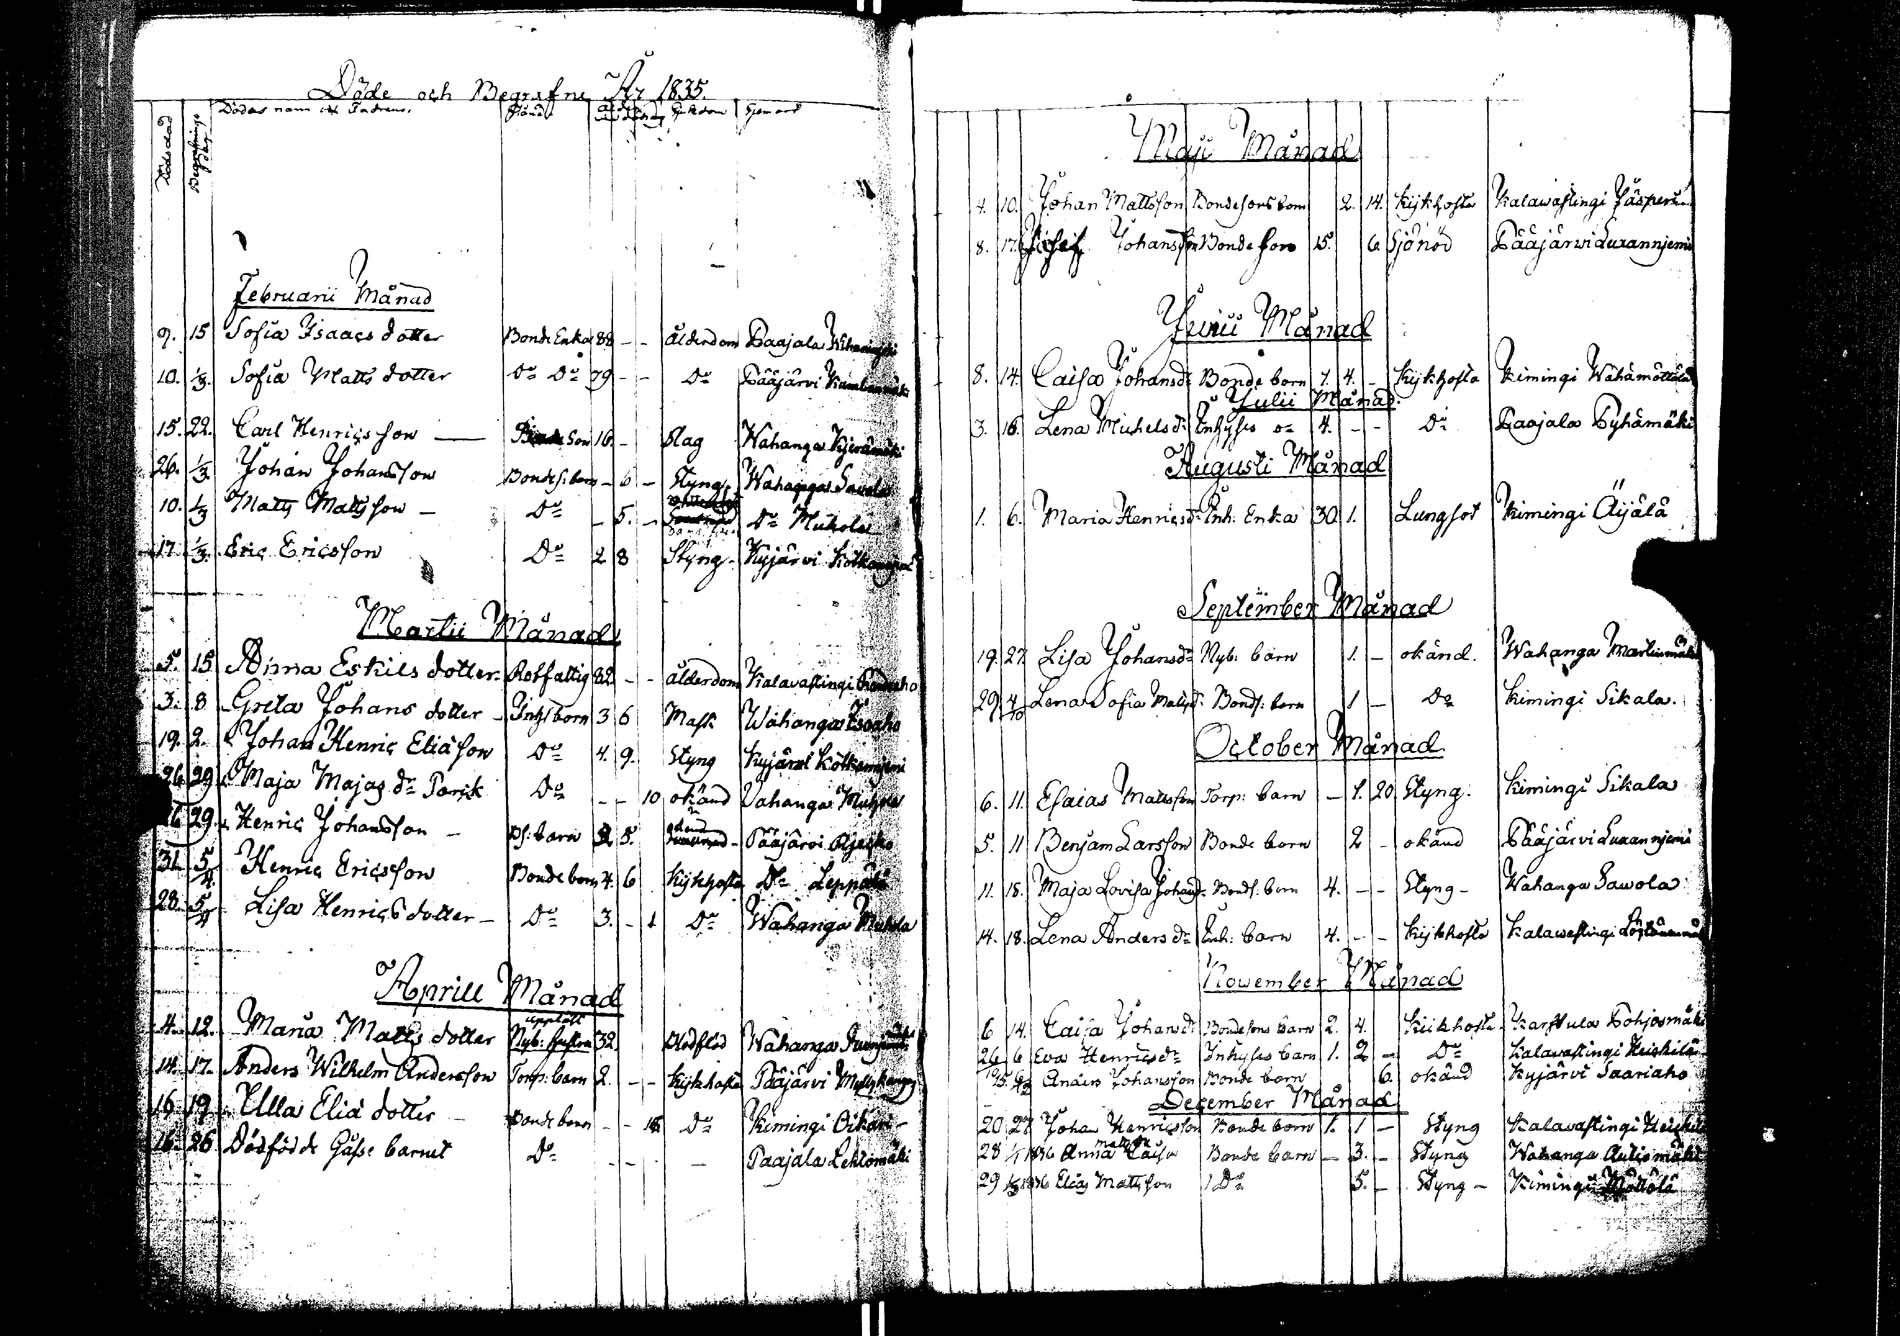 Döde och Begrafne År 1835.
Dödsdag Begrafnings dag Dödas namn och Fädrens. Stånd ålder Sjukdom Hemort
Februarii Månad
9. 15 Sofia Isaacs dotter Bonde Enka 88 - - ålderdom Paajala
10. 1/3. Sofia Matts dotter Do Do 79 - - Do Pääjärvi
15. 22. Carl Henricsson Bonde Son 16 - slag Wahanga
26. 1/3 Johan Johansson Bondes: barn - 6 - Styng Wahanga Sawola
10. 1/3 Matts Mattsson - Do - 5. - Do Muhola
17 1/3. Eric Ericsson Do 2 8 Styng - Kyjärvi
Martii Månad
5. 15 Anna Eskils dotter - Rotfattig 82 - - ålderdom Kalavastingi
3. 8 Greta Johans dotter - Inhs barn 3 6 Mask Wahanga
19. 2. Johan Henric Eliæson Do 4. 9. Styng Kyjärvi Kotkanjemi
26 29 Maja Majas dr Do - - 10 okänd Vahanga Muhola
29. Henric Johansson - barn 5. Pääjärvi
31. 5/4 Henric Ericsson Bonde born 4. 6 Kijkhosta Do
28. 5/4 Lisa Henrics dotter - Do 3. - 1 Do Wahanga Muhola
Aprill Månad
4. 12. Maria Matts dotter Nyb: 32. Blodflod Wahanga
14. 17. Anders Wilhelm Andersson Torp: barn 2. - - Kijkhosta Pääjärvi
16 19. Ulla Eliæ dotter - Bonde barn - - Do Kimingi Oikari -
16. 26 Dödfödde Gåsse barnet Do - - - Paajala Lehtomäki
Maji Månad
4. 10. Johan Mattsson Bondesons barn 2. 14. Kijkhosta Kalawastingi
8. 17. Johansson Bonde son 15. 6. Sjönöd Pääjärvi Luxannjemi
Junii Månad
8. 14. Caisa Johansdr Bonde born 7. 4. - Kijkhosta Kimingi
Julii Månad.
3. 16. Lena Michelsdr Inhyses 4. - - Do Paajala Pyhämäki
Augusti Månad
1. 6. Maria Henricsdr Inh: Enka 30 1. Lungsot Kimingi Äijälä
September Månad
19. 27. Lisa Johansdr Nyb: barn 1. - okänd. Wahanga
29 4/10 Lena Sofia Bonds: born 1 - Do Kimingi Sikala.
October Månad
6. 11. Esaias Mattsson Torp: barn - 1. 20 Styng. Kimingi Sikala
5. 11 Benjam Larsson Bonde born 2 - okänd Pääjärvi Luxannjemi
11. 18. Maja Lovisa Johansdr Bonds: born 4. - - Styng - Wahanga Sawola
14. 18. Lena Anders dr Inh: barn 4. - - Kijkhosta Kalawastingi
November Månad
6 14. Caisa Johansdr Bondesons barn 2. 4. Kiikhosta - Karstula Pohjosmäki
26 6 Eva Henricsdr Inhyses barn 1. 2 - Do Kalavastingi Heickilä
Anders Johansson Bonde born 6. okänd Kyjärvi Saariaho
December Månad
20 27 Johan Henricsson Bonde born 1. 1 - Styng Kalavastingi Heickilä
28 1/1 1836 Anna Caisa Bonde barn - 3. - Styng Wahanga Autiomäki
29 1836 Elias Mattsson Do 5. - Styng - Kimingi Möttölä